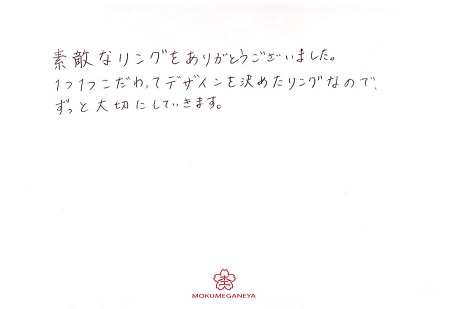 素敵なリングをありがとうございました。
1つ1つこだわってデザインを決めたリングなので、
ずっと大切にしていきます。
MOKUMEGANEYA